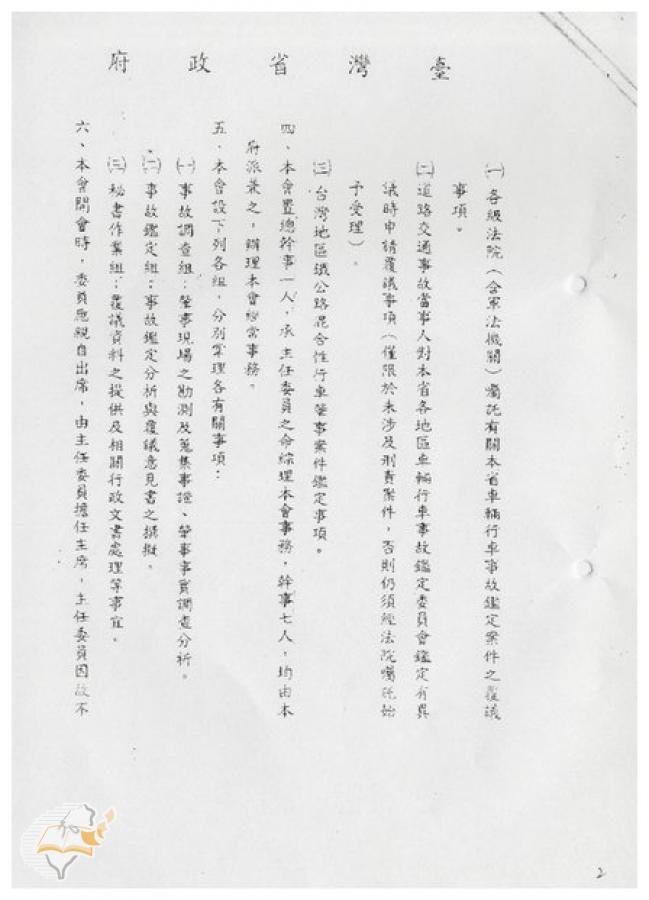 臺灣省政府
㈠各級法院（含軍法機關）囑託有關本省車輛行車事故鑑定案件之覆議
事項。
㈡道路交通事故當事人對本省各地區車輛行車事故鑑定委員會鑑定有異
議時申請覆議事項（僅限於未涉及刑責案件，否則仍須經法院囑託始
予受理）。
㈢台灣地區鐵公路混合性行車肇事案件鑑定事項。
四、本會置總幹事一人，承主任委員之命綜理本會事務，幹事七人，均由本
府派兼之，辦理本會經常事務。
五、本會設下列各組，分別掌理各有關事項：
㈠事故調查組：肇事現場之勘測及蒐集事證、肇事事實調查分析。
㈡事故鑑定組：事故鑑定分析與覆議意見書之撰擬。
㈢秘書作業組：覆議資料之提供及相關行政文書處理等事宜。
六、本會開會時，委員應親自出席，由主任委員擔任主席，主任委員因故不
2